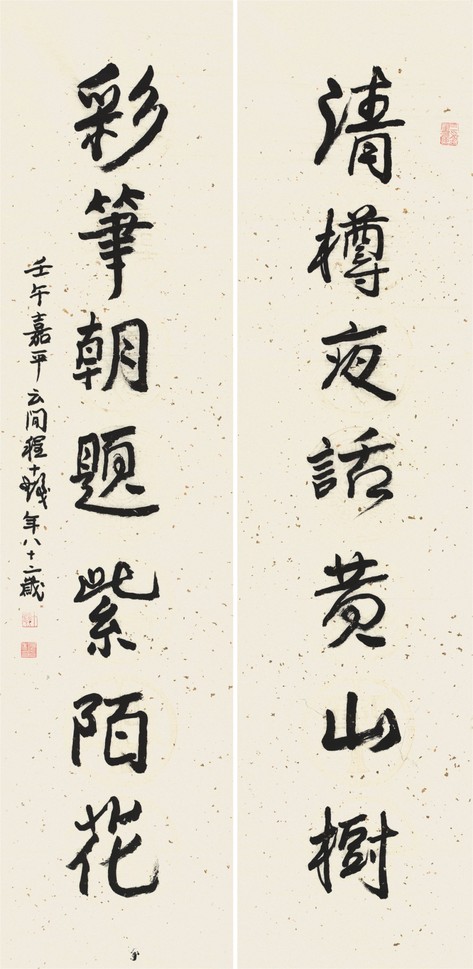 清樽夜話黄山樹
彩筆朝題紫陌花
壬午嘉平云间程十髮年八十二歲